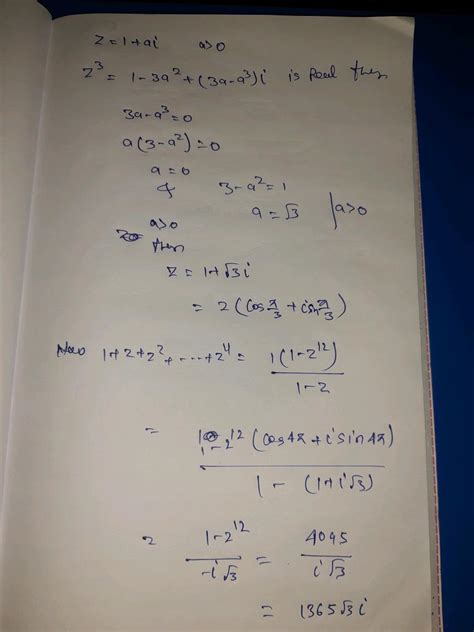 z = 1+ai a>0
z³ = 1-3a²+(3a-a³)i is Real then
3a-a³=0
a(3-a²)=0
a=0
& 3-a²=1
a=√3 | a>0
a>0
then
z = 1+√3i
= 2(cos π/3 + i sin π/3)
Now 1+z+z²+---+z⁴ = 1(1-z¹²)/1-z
= 1-2¹²(cos4π+isin4π)/1-(1+i√3)
= 1-2¹²/-i√3 = 4095/i√3
= 1365√3i